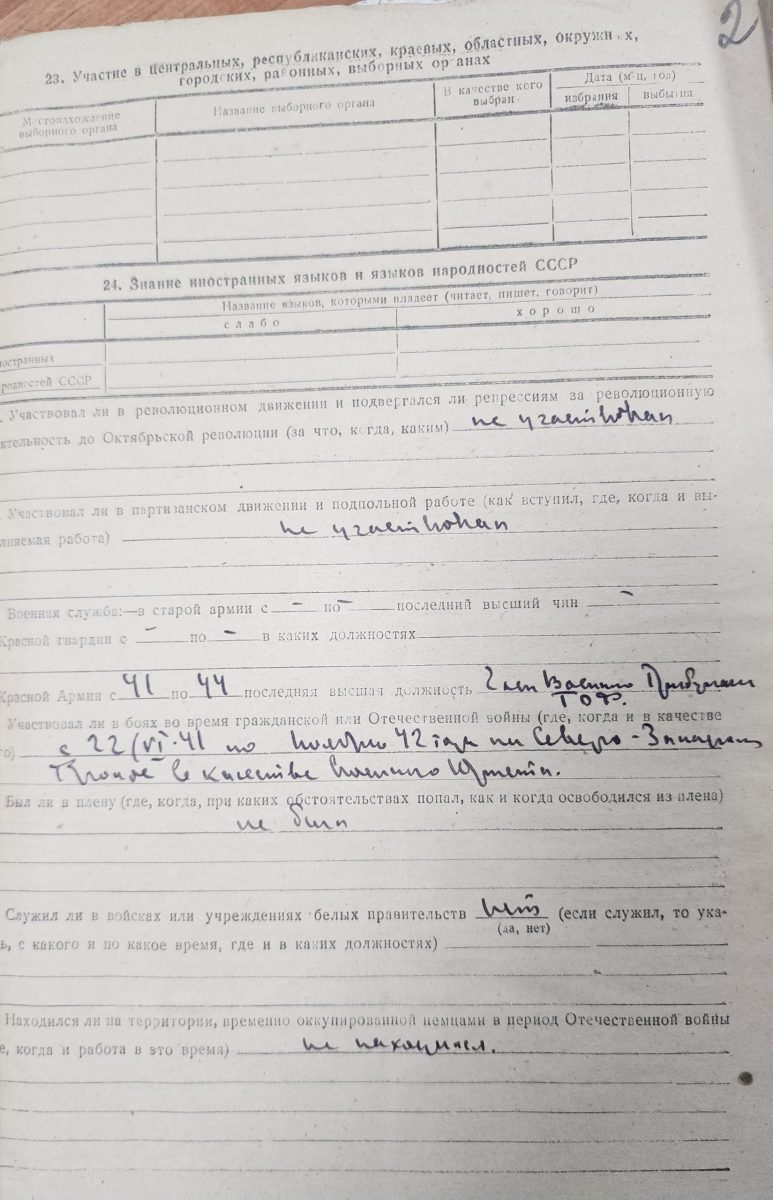 2
23. Участие в центральных, республиканских, краевых, областных, окружных,
городских, районных, выборных органах
Местонахождение выборного органа
Название выборного органа
В качестве кого выбран
Дата (м-ц, год)
избрания
выбытия
24. Знание иностранных языков и языков народностей СССР
Название языков, которыми владеет (читает, пишет, говорит)
слабо
хорошо
остранных
родностей СССР
. Участвовал ли в революционном движении и подвергался ли репрессиям за революционную
ятельность до Октябрьской революции (за что, когда, каким) не участвовал
. Участвовал ли в партизанском движении и подпольной работе (как вступил, где, когда и вы-
лняемая работа) не участвовал
Военная служба:—в старой армии с – по – последний высший чин –
Красной гвардии с – по – в каких должностях
Красной Армии с 41 по 44 последняя высшая должность Член Военного Трибунала
ТОФ.
Участвовал ли в боях во время гражданской или Отечественной войны (где, когда и в качестве
го) с 22/VI·41 по ноябрь 42 года на Северо-Западном
Фронте в качестве военного юриста.
Был ли в плену (где, когда, при каких обстоятельствах попал, как и когда освободился из плена)
не был
Служил ли в войсках или учреждениях белых правительств нет (если служил, то ука-
(да, нет)
ь, с какого и по какое время, где и в каких должностях)
Находился ли на территории, временно оккупированной немцами в период Отечественной войны
е, когда и работа в это время) не находился.